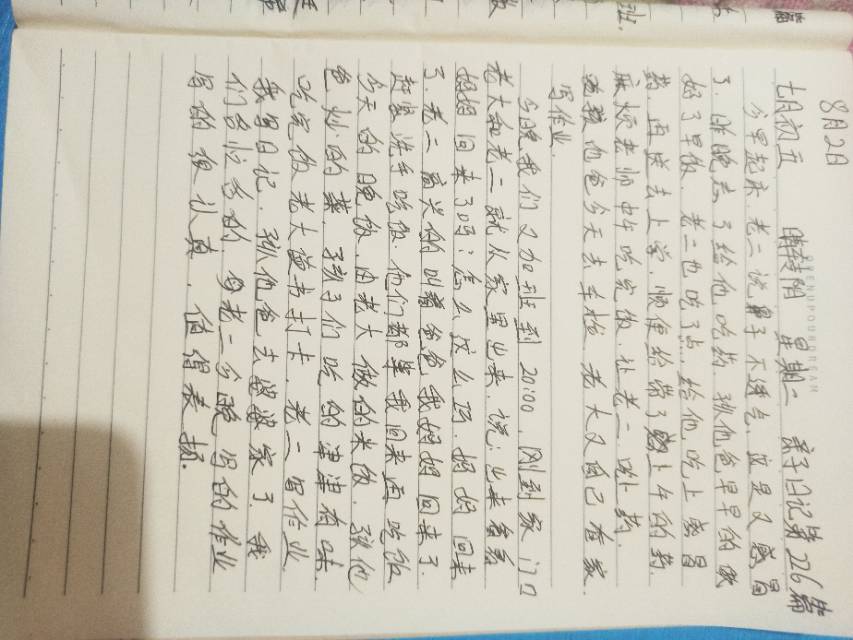 8月2日
七月初五 晴转阴 星期二 亲子日记第226篇
今早起来,老二说鼻子不透气,应是又感冒
了.昨晚忘了给他吃药.孩他爸早早的做
好了早饭,老二也吃了点.给他吃上感冒
药,再送去上学,顺便给带了上午的药.
麻烦老师中午吃完饭,让老二喝上药.
他爸今天去车检.老大又自己看家.
写作业.
今晚我们又加班到20:00.刚到家门口
老大和老二就从家里出来,说:出来看看
妈妈回来了吗?怎么这么巧,妈妈回来
了.老二高兴的叫着爸爸我妈妈回来了.
赶紧洗手吃饭.他们都等我回来再吃饭
今天的晚饭,由老大做的米饭,孩他
爸炒的菜,孩子们吃的津津有味.
吃完饭老大读书打卡,老二写作业.
我写日记,孩他爸去婆婆家了.我
们各忙各的,另老二今晚写的作业
写的很认真,值得表扬.
OPEN UP OUR DREAM
班.